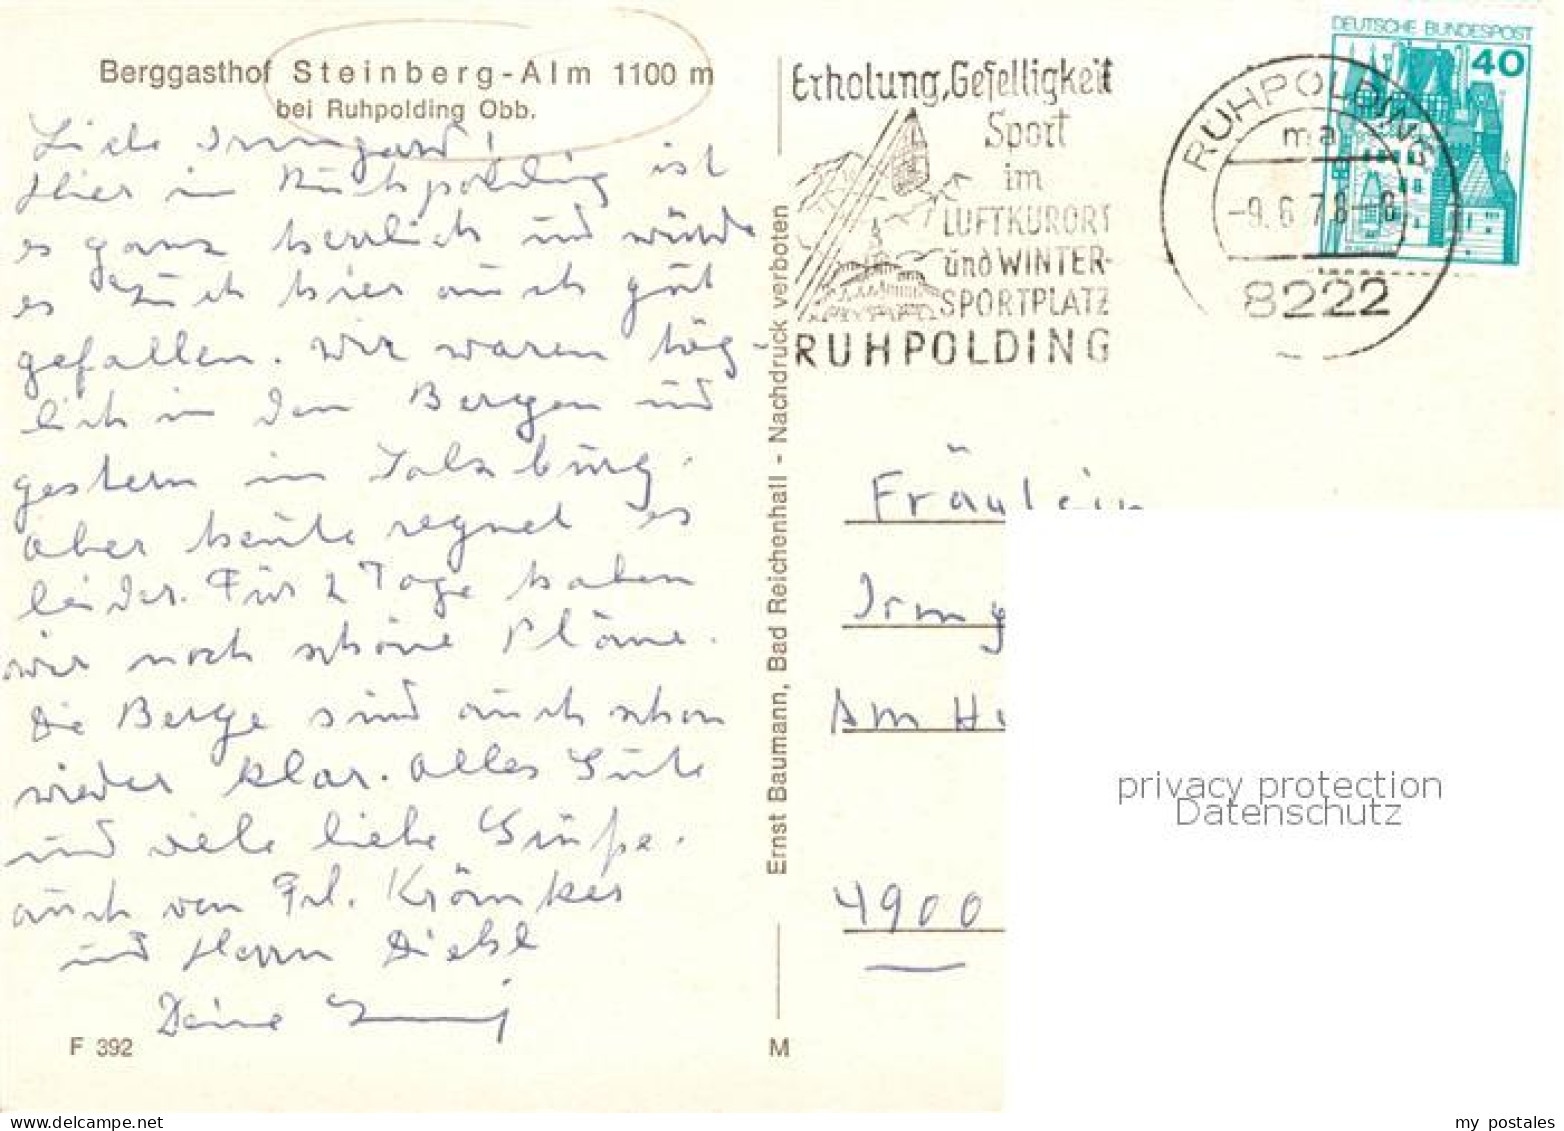 Berggasthof Steinberg-Alm 1100 m
bei Ruhpolding Obb.
Liebe Irmgard!
Hier in Ruhpolding ist
es ganz herrlich und würde
es Euch hier auch gut
gefallen. Wir waren täg-
lich in den Bergen und
gestern in Salzburg.
Aber heute regnet es
leider. Für 2 Tage haben
wir noch schöne Pläne.
Die Berge sind auch schon
wieder klar. Alles Gute
und viele liebe Grüße.
auch von Frl. Krömker
und Herrn Diehl
Deine
F 392
Ernst Baumann, Bad Reichenhall - Nachdruck verboten
M
Erholung, Geselligkeit
Sport
im
LUFTKURORT
und WINTER-
SPORTPLATZ
RUHPOLDING
RUHPOLDING
ma
-9.6.78-8
8222
DEUTSCHE BUNDESPOST
40
Fräulein
Irmg
Am H
4900
privacy protection
Datenschutz
my postales